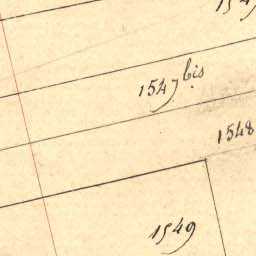 1547 bis
1548
1549